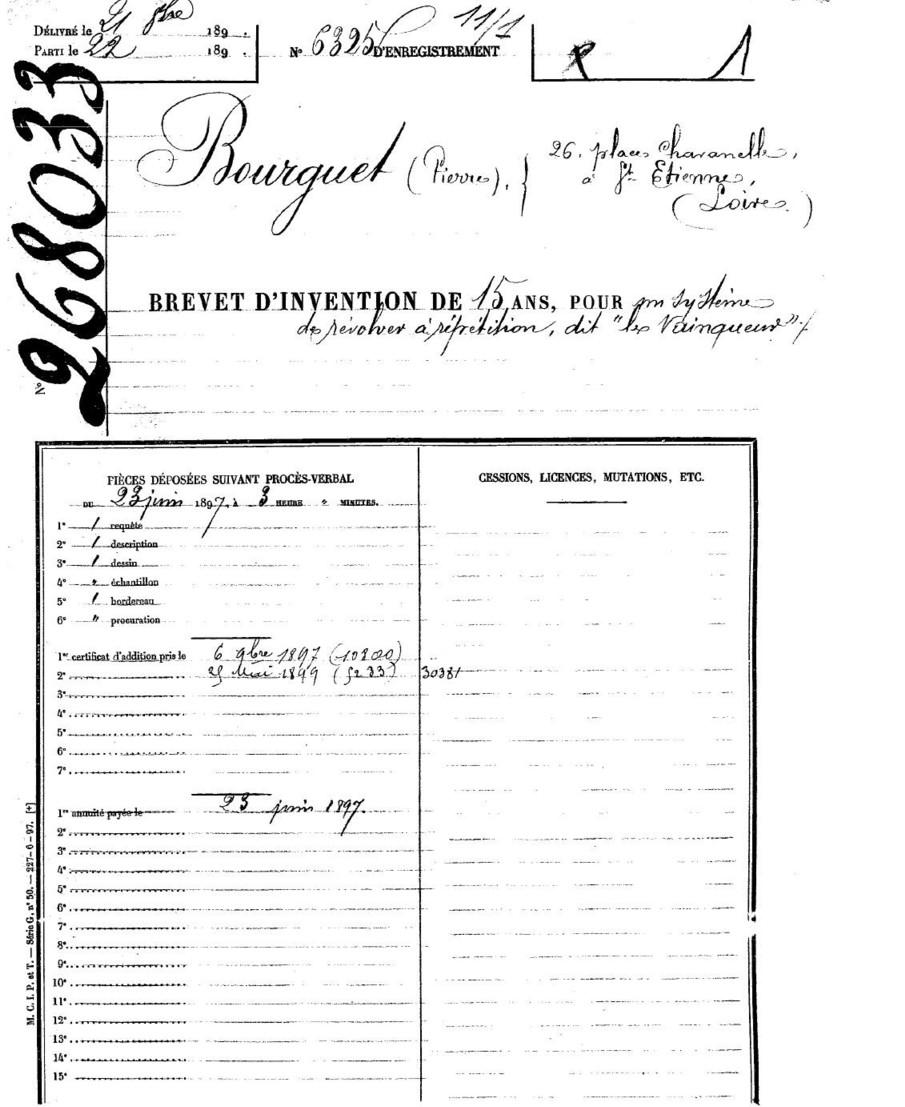 DÉLIVRÉ le 21 8bre 189 .
PARTI le 22 189 .
N° 6325 D'ENREGISTREMENT
11/1
1
N° 268033
Bourguet (Pierre), } 26, place Chavanelle,
à St Etienne,
(Loire.)
BREVET D'INVENTION DE 15 ANS, POUR un système
de révolver à répétition, dit "le Vainqueur"
PIÈCES DÉPOSÉES SUIVANT PROCÈS-VERBAL
DU 23 juin 1897, à 3 HEURE " MINUTES.
1° 1 requête
2° 1 description
3° 1 dessin
4° " échantillon
5° 1 bordereau
6° " procuration
1er certificat d'addition pris le 6 9bre 1897 (10800)
2e 25 Mai 1899 (5233) 30381
3e
4e
5e
6e
7e
1re annuité payée le 23 juin 1897.
2e
3e
4e
5e
6e
7e
8e
9e
10e
11e
12e
13e
14e
15e
CESSIONS, LICENCES, MUTATIONS, ETC.
M. C. I. P. et T. — Série G. n° 50. — 227-6-97. [+]